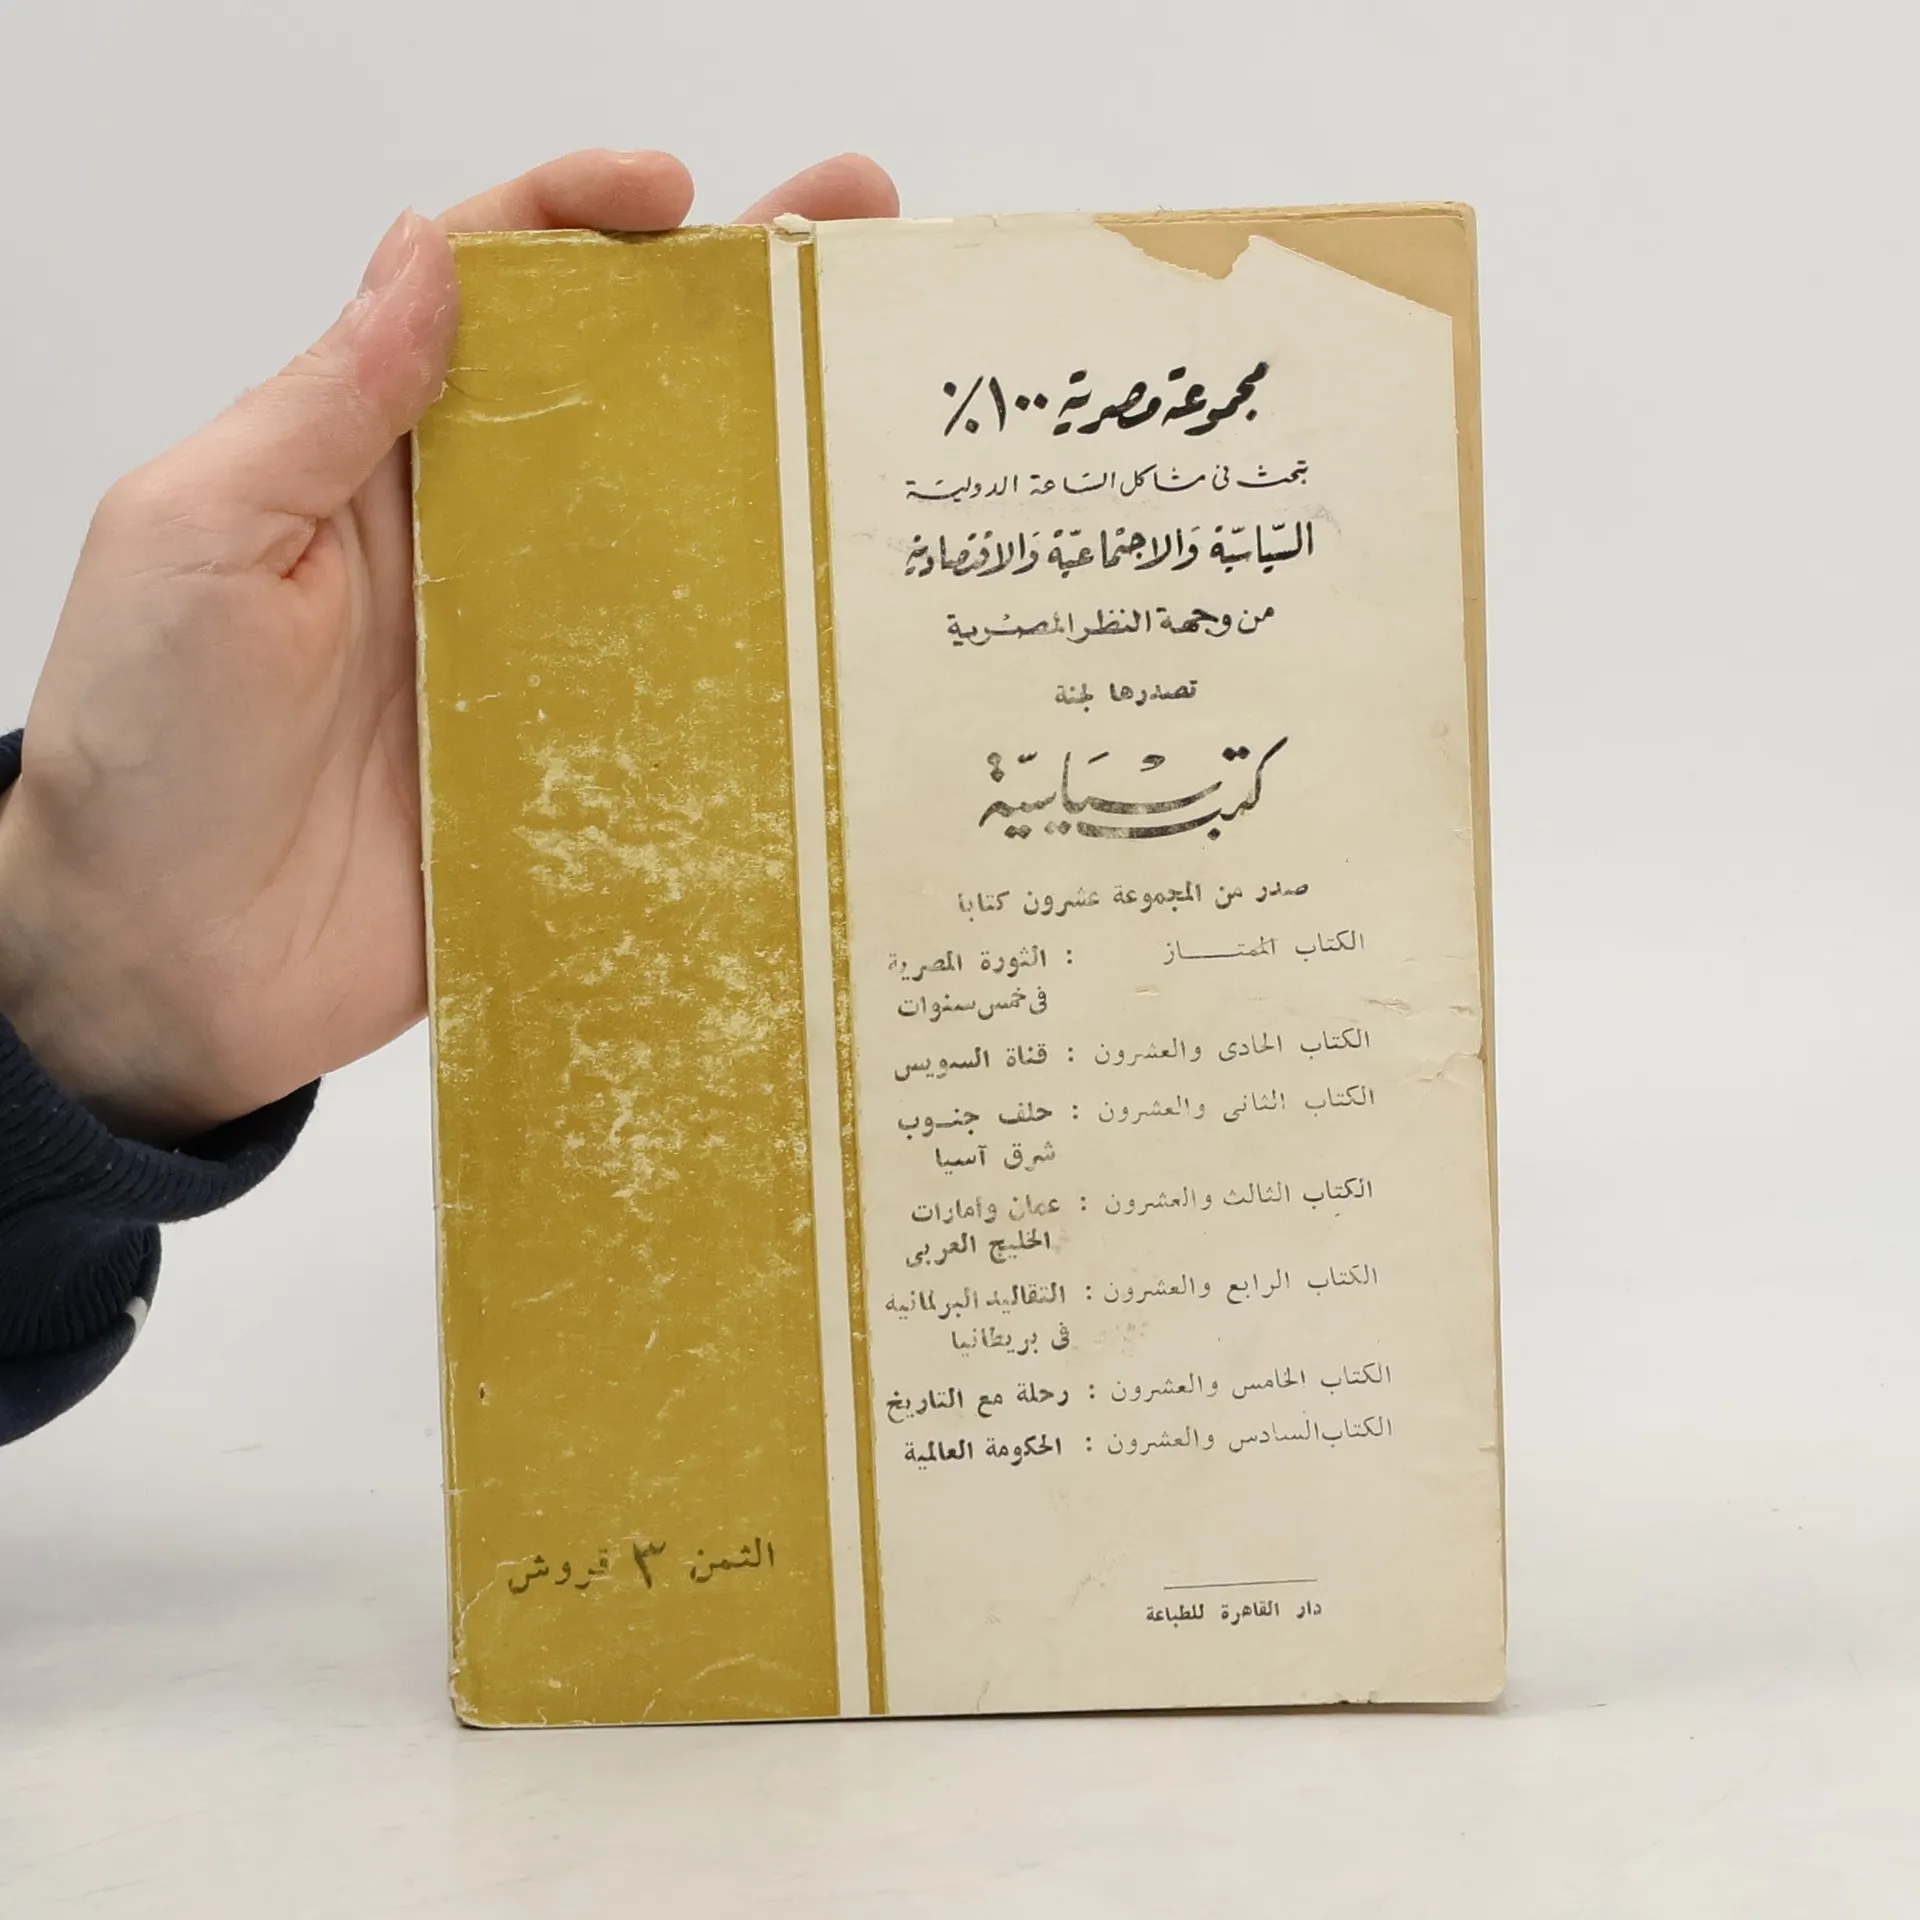 مجموعة مصرية ١٠٠٪
تبحث فى مشاكل الساعة الدولية
السّياسيّة وَالاجتماعيّة وَالاقتصادية
من وجهة النظر المصرية
تصدرها لجنة
كتب سياسيّة
صدر من المجموعة عشرون كتابا
الكتاب الممتـــــاز : الثورة المصرية
فى خمس سنوات
الكتاب الحادى والعشرون : قناة السويس
الكتاب الثانى والعشرون : حلف جنــوب
شرق آسيا
الكتاب الثالث والعشرون : عمان وامارات
الخليج العربى
الكتاب الرابع والعشرون : التقاليد البرلمانية
فى بريطانيا
الكتاب الخامس والعشرون : رحلة مع التاريخ
الكتاب السادس والعشرون : الحكومة العالمية
الثمن ٣ قروش
دار القاهرة للطباعة